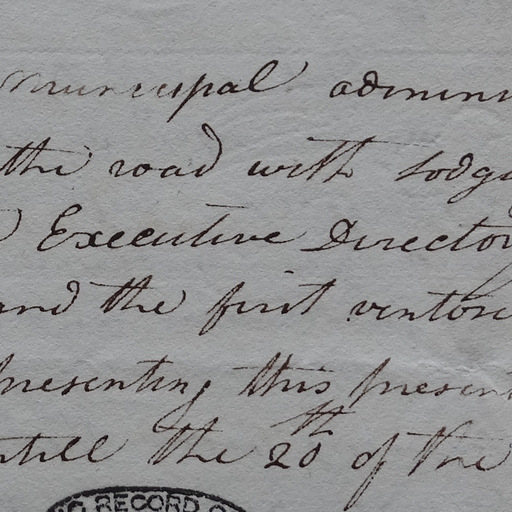 Municipal admini
the road with lodgi
Executive Directory
and the first ventose
presenting this present
untill the 20th of the
RECORD O